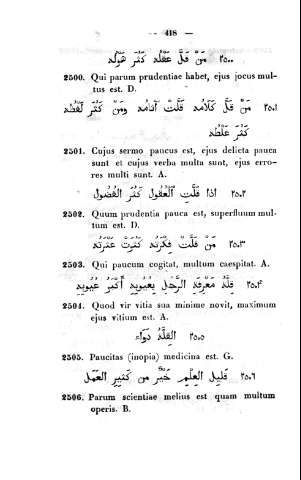 — 418 —
٢٥٠٠ مَنْ قَلَّ عَقْلُهُ كَثُرَ هَزْلُهُ
2500. Qui parum prudentiae habet, ejus jocus mul-
tus est. D.
٢٥٠١ مَنْ قَلَّ كَلَامُهُ قَلَّتْ آثَامُهُ ومَنْ كَثُرَ لَفْظُهُ
كَثُرَ غَلَطُهُ
2501. Cujus sermo paucus est, ejus delicta pauca
sunt et cujus verba multa sunt, ejus erro-
res multi sunt. A.
٢٥٠٢ اذا قَلَّتِ ٱلْعُقُولُ كَثُرَ الفُضُولُ
2502. Quum prudentia pauca est, superfluum mul-
tum est. D.
٢٥٠٣ مَنْ قَلَّتْ فِكْرَتُهُ كَثُرَتْ عَثْرَتُهُ
2503. Qui paucum cogitat, multum caespitat. A.
٢٥٠٤ قِلَّةُ مَعْرِفَةِ الرَّجُلِ بِعُيُوبِهِ أَكْبَرُ عُيُوبِهِ
2504. Quod vir vitia sua minime novit, maximum
ejus vitium est. A.
٢٥٠٥ القِلَّةُ دَوَاء
2505. Paucitas (inopia) medicina est. G.
٢٥٠٦ قَلِيلُ العِلْمِ خَيْرٌ من كَثِيرِ العَمَلِ
2506. Parum scientiae melius est quam multum
operis. B.